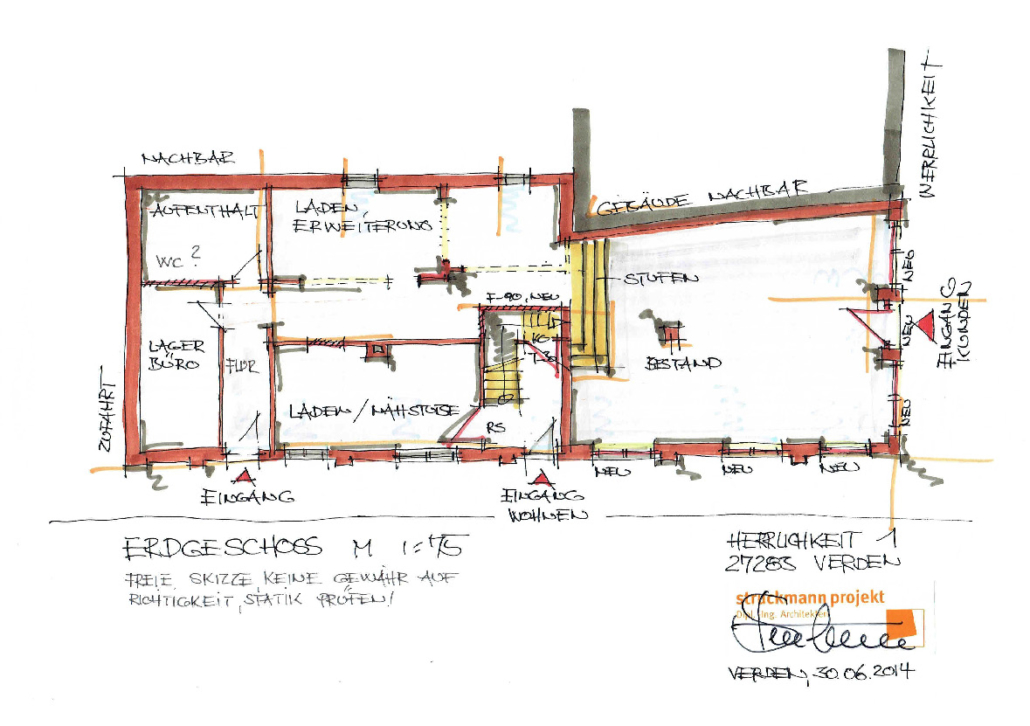 NACHBAR
HERRLICHKEIT
GEBÄUDE NACHBAR
AUFENTHALT
LADEN,
ERWEITERUNG
WC?
STUFEN
NEU
F-90, NEU
EINGANG
KUNDEN
KG
T-30
NEU
LAGER
BÜRO
FLUR
BESTAND
ZUFAHRT
LADEN/NÄHSTUBE
RS
NEU
NEU
NEU
NEU
EINGANG
EINGANG
WOHNEN
ERDGESCHOSS M 1:75
FREIE SKIZZE, KEINE GEWÄHR AUF
RICHTIGKEIT, STATIK PRÜFEN!
HERRLICHKEIT 1
27283 VERDEN
struckmann projekt
Dipl. Ing. Architekten
VERDEN, 30.06.2014